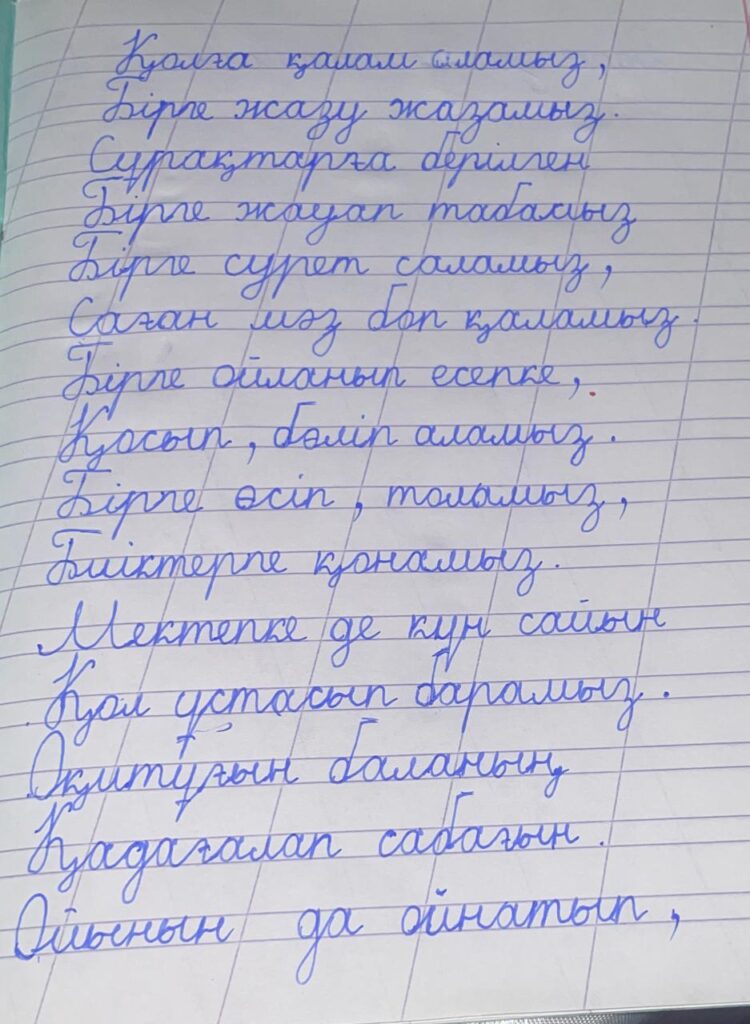 Қолға қалам аламыз,
Бірге жазу жазамыз.
Сұрақтарға берілген
Бірге жауап табамыз
Бірге сурет саламыз,
Саған мәз боп қаламыз.
Бірге ойланып есепке,
Қосып, бөліп аламыз.
Бірге өсіп, толамыз,
Биіктерге қонамыз.
Мектепке де күн сайын
Қол ұстасып барамыз.
Оқитұғын баланың,
Қадағалап сабағын.
Ойынын да ойнатып,